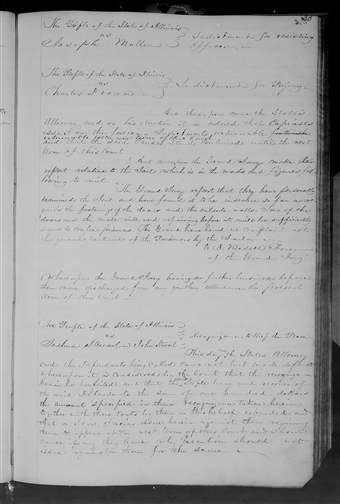 33
The People of the State of Illinois
vs Indictment for resisting
Joseph officer
The People of the State of Illinois
vs Indictment for Perjury
Charles
And now comes the State's
Attorney and on his motion it is ordered that Capiases
issue on the Indictments returnable
and that the said causes stand continued until the next
term of this Court
And now come the Grand Jury make their
report relative to the Jail which is in the words and figures fol-
lowing to wit
The Grand Jury report that they have personally
examined the Jail and have found it to be insecure so far as re-
gards the fastenings of the doors and the outside walls. Two of the
doors and the walls will need repairing before it could be sufficiently
secure to confine prisoners. The Grand Jury have no complaint to
the general treatment of the Prisoners by the
Foreman
of the Grand Jury
Whereupon the Grand Jury having no further business before
them were discharged from any further attendance the present
term of this Court
The People of the State of Illinois
vs Recognizance to Keep the Peace
Joshua John
This day the States Attorney
and the Defendants being called came not but made default
whereupon it is considered by the Court that the recognizance
herein be forfeited and that the People have and recover of
the said Defendants the sum of one hundred dollars
the amount specified in their recognizance herein
together with their costs by them in this behalf expended and
that a Scire facias issue herein against them requiring
them to appear at the next term of this Court and show
cause if any they have why Execution should not
issue against them for the same